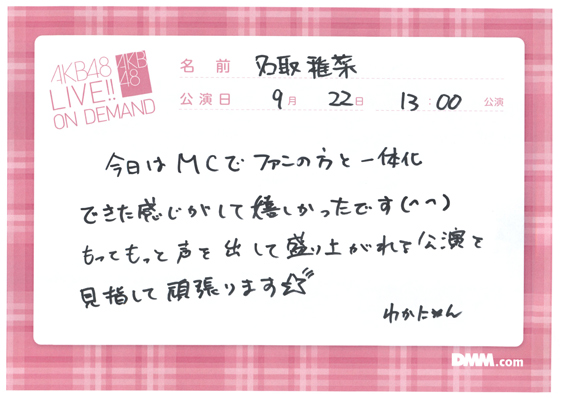 AKB48
LIVE!!
ON DEMAND
AKB
48
名前 名取稚菜
公演日 9月 22日 13:00 公演
今日はMCでファンの方と一体化
できた感じがして嬉しかったです(^^)
もっともっと声を出して盛り上がれる公演を
目指して頑張ります☆
わかにゃん
DMM.com